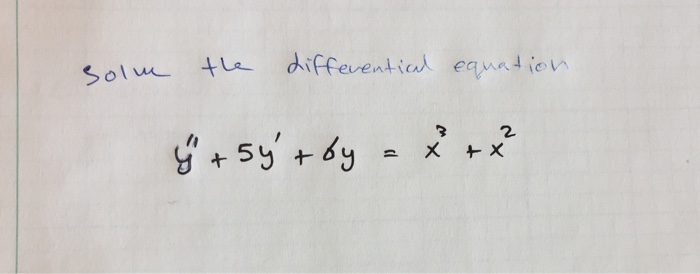 Solve the differential equation
y'' + 5y' + 6y = x³ + x²